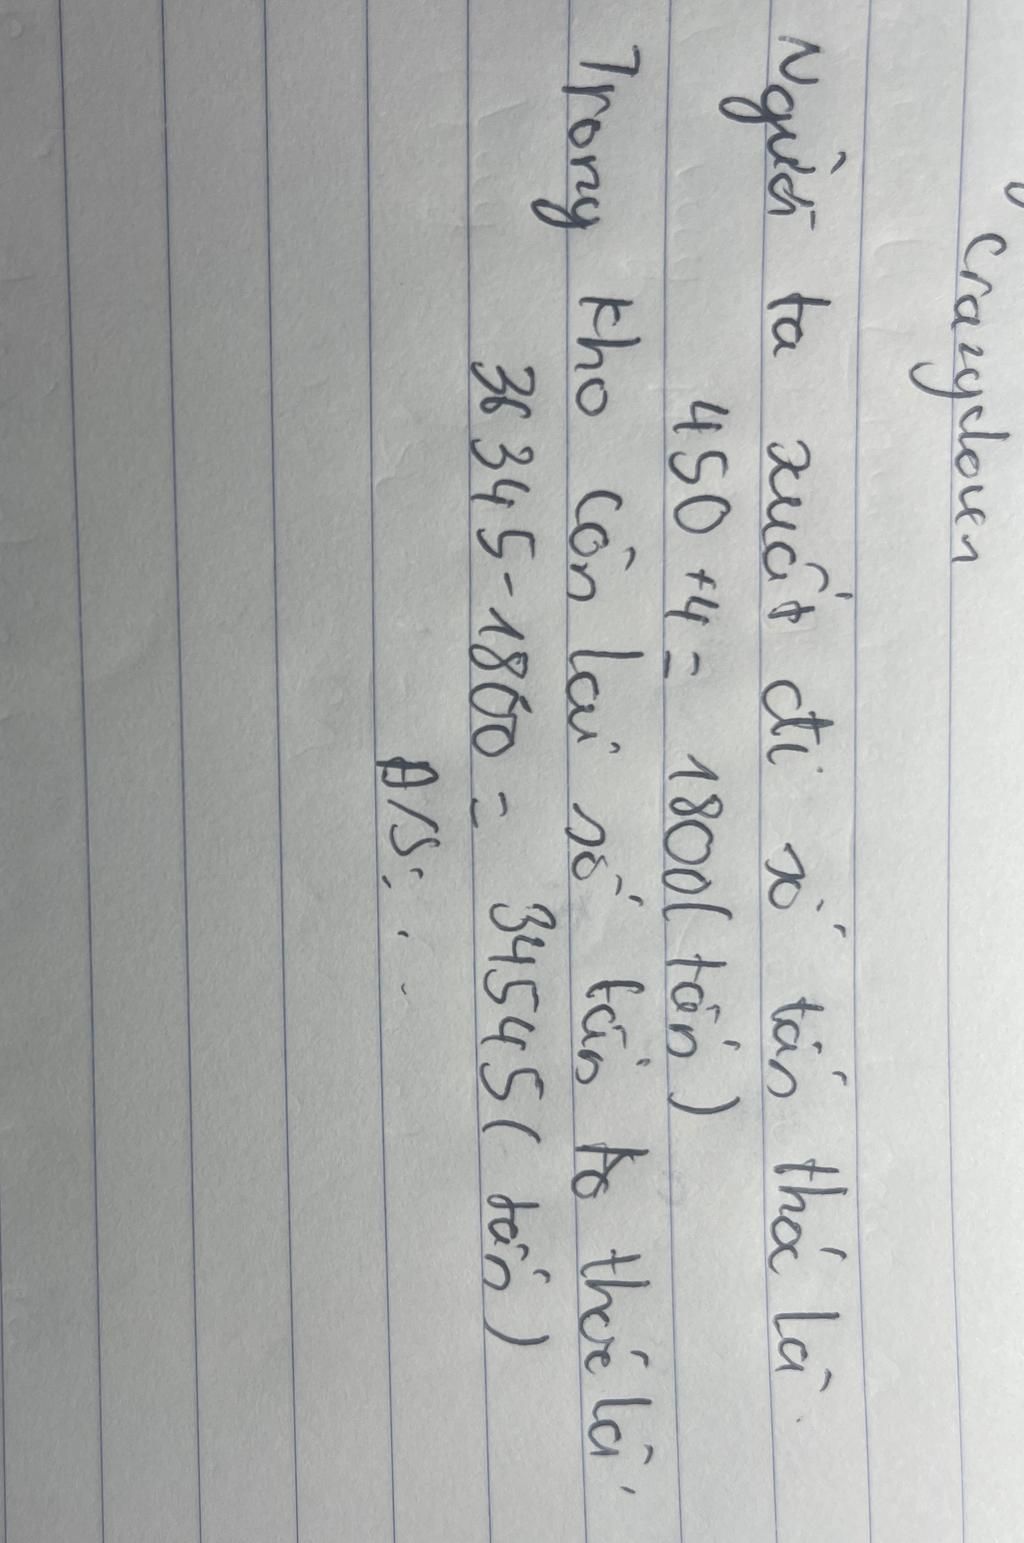 crazydoven
Người ta xuất đi số tấn thóc là
450 + 4 = 1800 (tấn)
Trong kho còn lại số tấn to thóc là
36345 - 1800 = 34545 (tấn)
Đ/S: . .